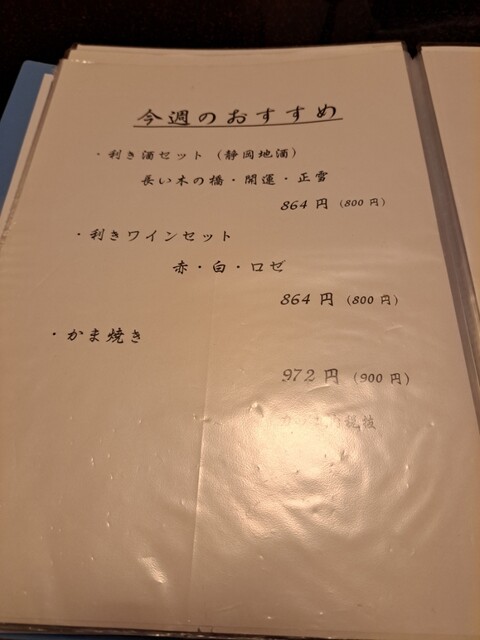 今週のおすすめ
・利き酒セット（静岡地酒）
長い木の橋・開運・正雪
864 円（800 円）
・利きワインセット
赤・白・ロゼ
864 円（800 円）
・かま焼き
972 円（900 円）
カッコ内税抜